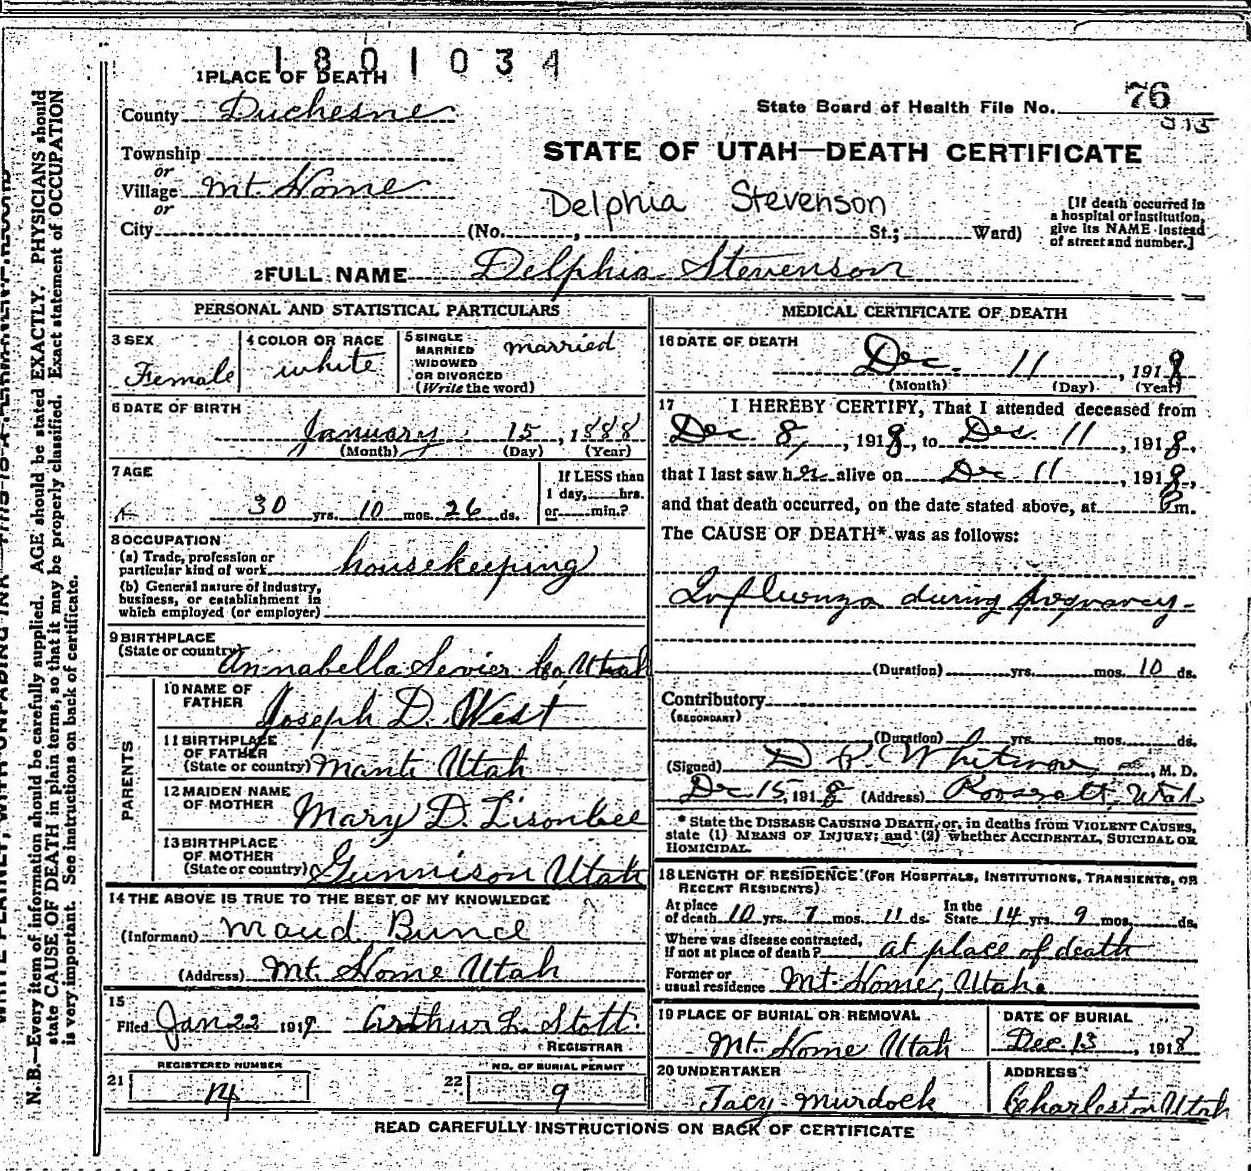 1801034
1 PLACE OF DEATH
County Duchesne
State Board of Health File No. 76
915
Township
or
Village Mt. Home
or
City (No. , St.; Ward)
STATE OF UTAH—DEATH CERTIFICATE
Delphia Stevenson
[If death occurred in
a hospital or institution,
give its NAME instead
of street and number.]
2 FULL NAME Delphia Stevenson
PERSONAL AND STATISTICAL PARTICULARS
3 SEX
Female
4 COLOR OR RACE
white
5 SINGLE
MARRIED
WIDOWED
OR DIVORCED
(Write the word)
married
6 DATE OF BIRTH
January 15, 1888
(Month) (Day) (Year)
7 AGE
30 yrs. 10 mos. 26 ds.
If LESS than
1 day, hrs.
or min.?
8 OCCUPATION
(a) Trade, profession or
particular kind of work housekeeping
(b) General nature of industry,
business, or establishment in
which employed (or employer)
9 BIRTHPLACE
(State or country) Annabella Sevier Co, Utah
PARENTS
10 NAME OF
FATHER Joseph D. West
11 BIRTHPLACE
OF FATHER
(State or country) Manti Utah
12 MAIDEN NAME
OF MOTHER Mary D. Lisonbee
13 BIRTHPLACE
OF MOTHER
(State or country) Gunnison Utah
14 THE ABOVE IS TRUE TO THE BEST OF MY KNOWLEDGE
(Informant) Maud Bunce
(Address) Mt. Home Utah
15
Filed Jan 22 1919 Arthur L. Stott.
REGISTRAR
21 REGISTERED NUMBER
14
22 NO. OF BURIAL PERMIT
9
MEDICAL CERTIFICATE OF DEATH
16 DATE OF DEATH
Dec. 11, 1918
(Month) (Day) (Year)
17 I HEREBY CERTIFY, That I attended deceased from
Dec. 8, 1918, to Dec. 11, 1918,
that I last saw her alive on Dec 11, 1918,
and that death occurred, on the date stated above, at m.
The CAUSE OF DEATH* was as follows:
Influenza during pregnancy-
(Duration) yrs. mos. 10 ds.
Contributory
(SECONDARY)
(Duration) yrs. mos. ds.
(Signed) D. , M. D.
Dec 15, 1918 (Address) Roosevelt, Utah
* State the DISEASE CAUSING DEATH, or, in deaths from VIOLENT CAUSES,
state (1) MEANS OF INJURY; and (2) whether ACCIDENTAL, SUICIDAL OR
HOMICIDAL.
18 LENGTH OF RESIDENCE (FOR HOSPITALS, INSTITUTIONS, TRANSIENTS, OR
RECENT RESIDENTS)
At place
of death 10 yrs. 7 mos. 11 ds. In the
State 14 yrs. 9 mos. ds.
Where was disease contracted,
if not at place of death? at place of death
Former or
usual residence Mt. Home, Utah.
19 PLACE OF BURIAL OR REMOVAL
Mt. Home Utah
DATE OF BURIAL
Dec. 13, 1918
20 UNDERTAKER
Tacy Murdock
ADDRESS
Charleston Utah
READ CAREFULLY INSTRUCTIONS ON BACK OF CERTIFICATE
WRITE PLAINLY, WITH UNFADING INK—THIS IS A PERMANENT RECORD
N. B.—Every item of information should be carefully supplied. AGE should be stated EXACTLY. PHYSICIANS should
state CAUSE OF DEATH in plain terms, so that it may be properly classified. Exact statement of OCCUPATION
is very important. See instructions on back of certificate.